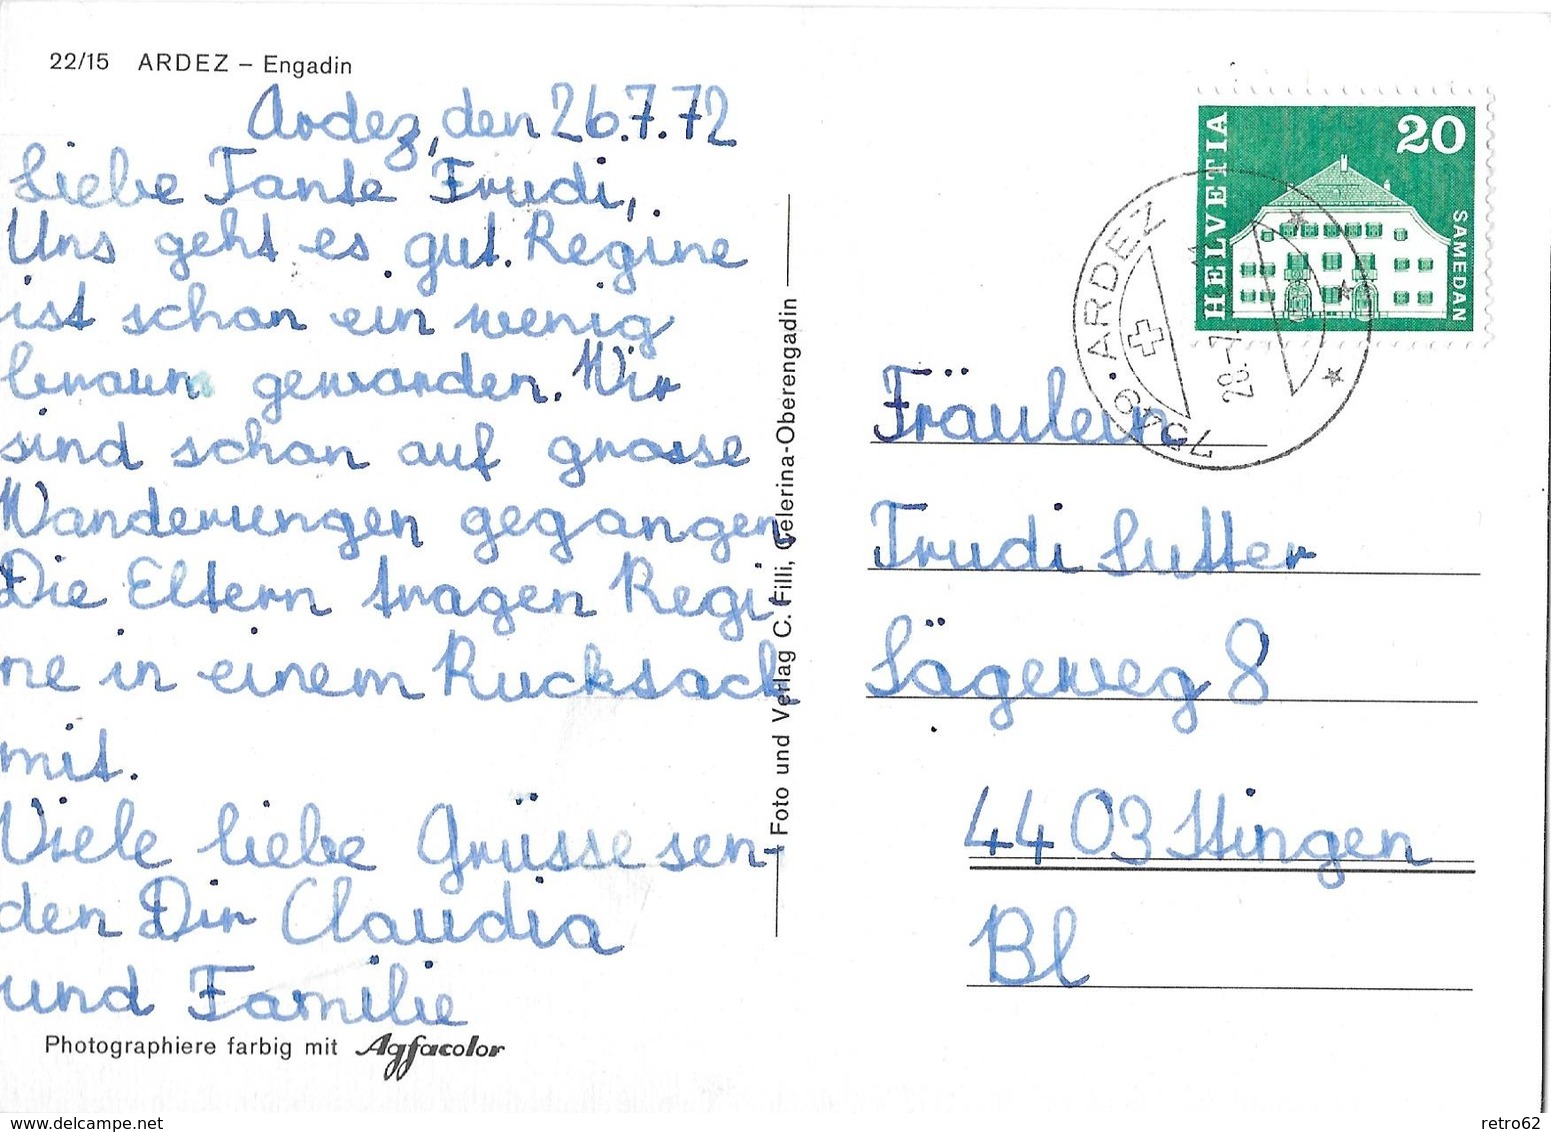 22/15 ARDEZ – Engadin
Ardez, den 26.7.72
Liebe Tante Trudi,
Uns geht es gut. Regine
ist schon ein wenig
braun geworden. Wir
sind schon auf grosse
Wanderungen gegangen.
Die Eltern tragen Regi-
ne in einem Rucksack
mit.
Viele liebe Grüsse sen-
den Dir Claudia
und Familie
Photographiere farbig mit Agfacolor
Foto und Verlag C. Filli, Celerina-Oberengadin
HELVETIA
20
SAMEDAN
7549 · ARDEZ
28.-7.
Fräulein
Trudi Sutter
Sägeweg 8
4403 Itingen
Bl
www.delcampe.net
retro62